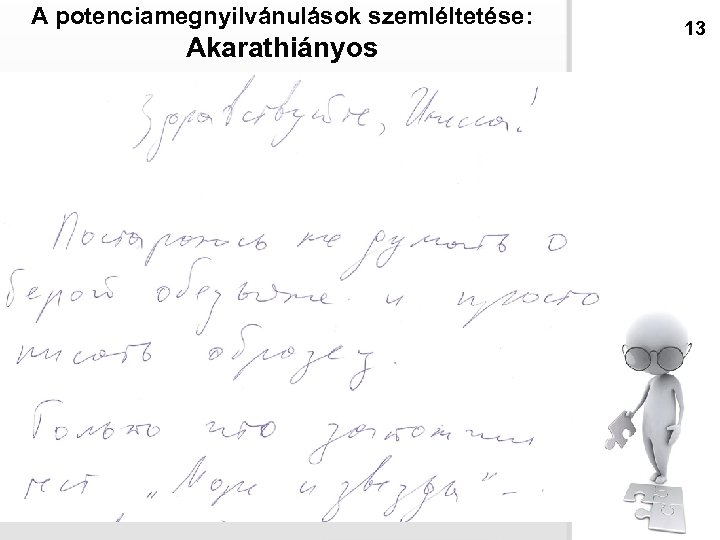 A potenciamegnyilvánulások szemléltetése:
Akarathiányos
13
Здравствуйте, Инесса!
Постараюсь не думать о
белой обезьяне и просто
писать образец.
Только что заполнил
тест „Море и звезды" –